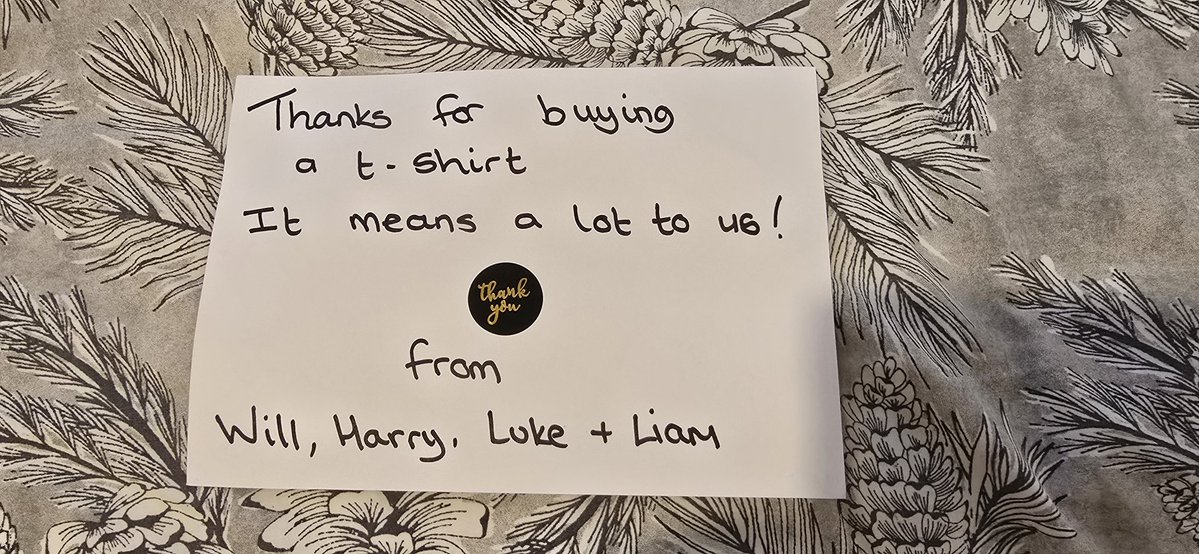 Thanks for buying
a t-shirt
It means a lot to us!
thank
you
from
Will, Harry, Luke + Liam